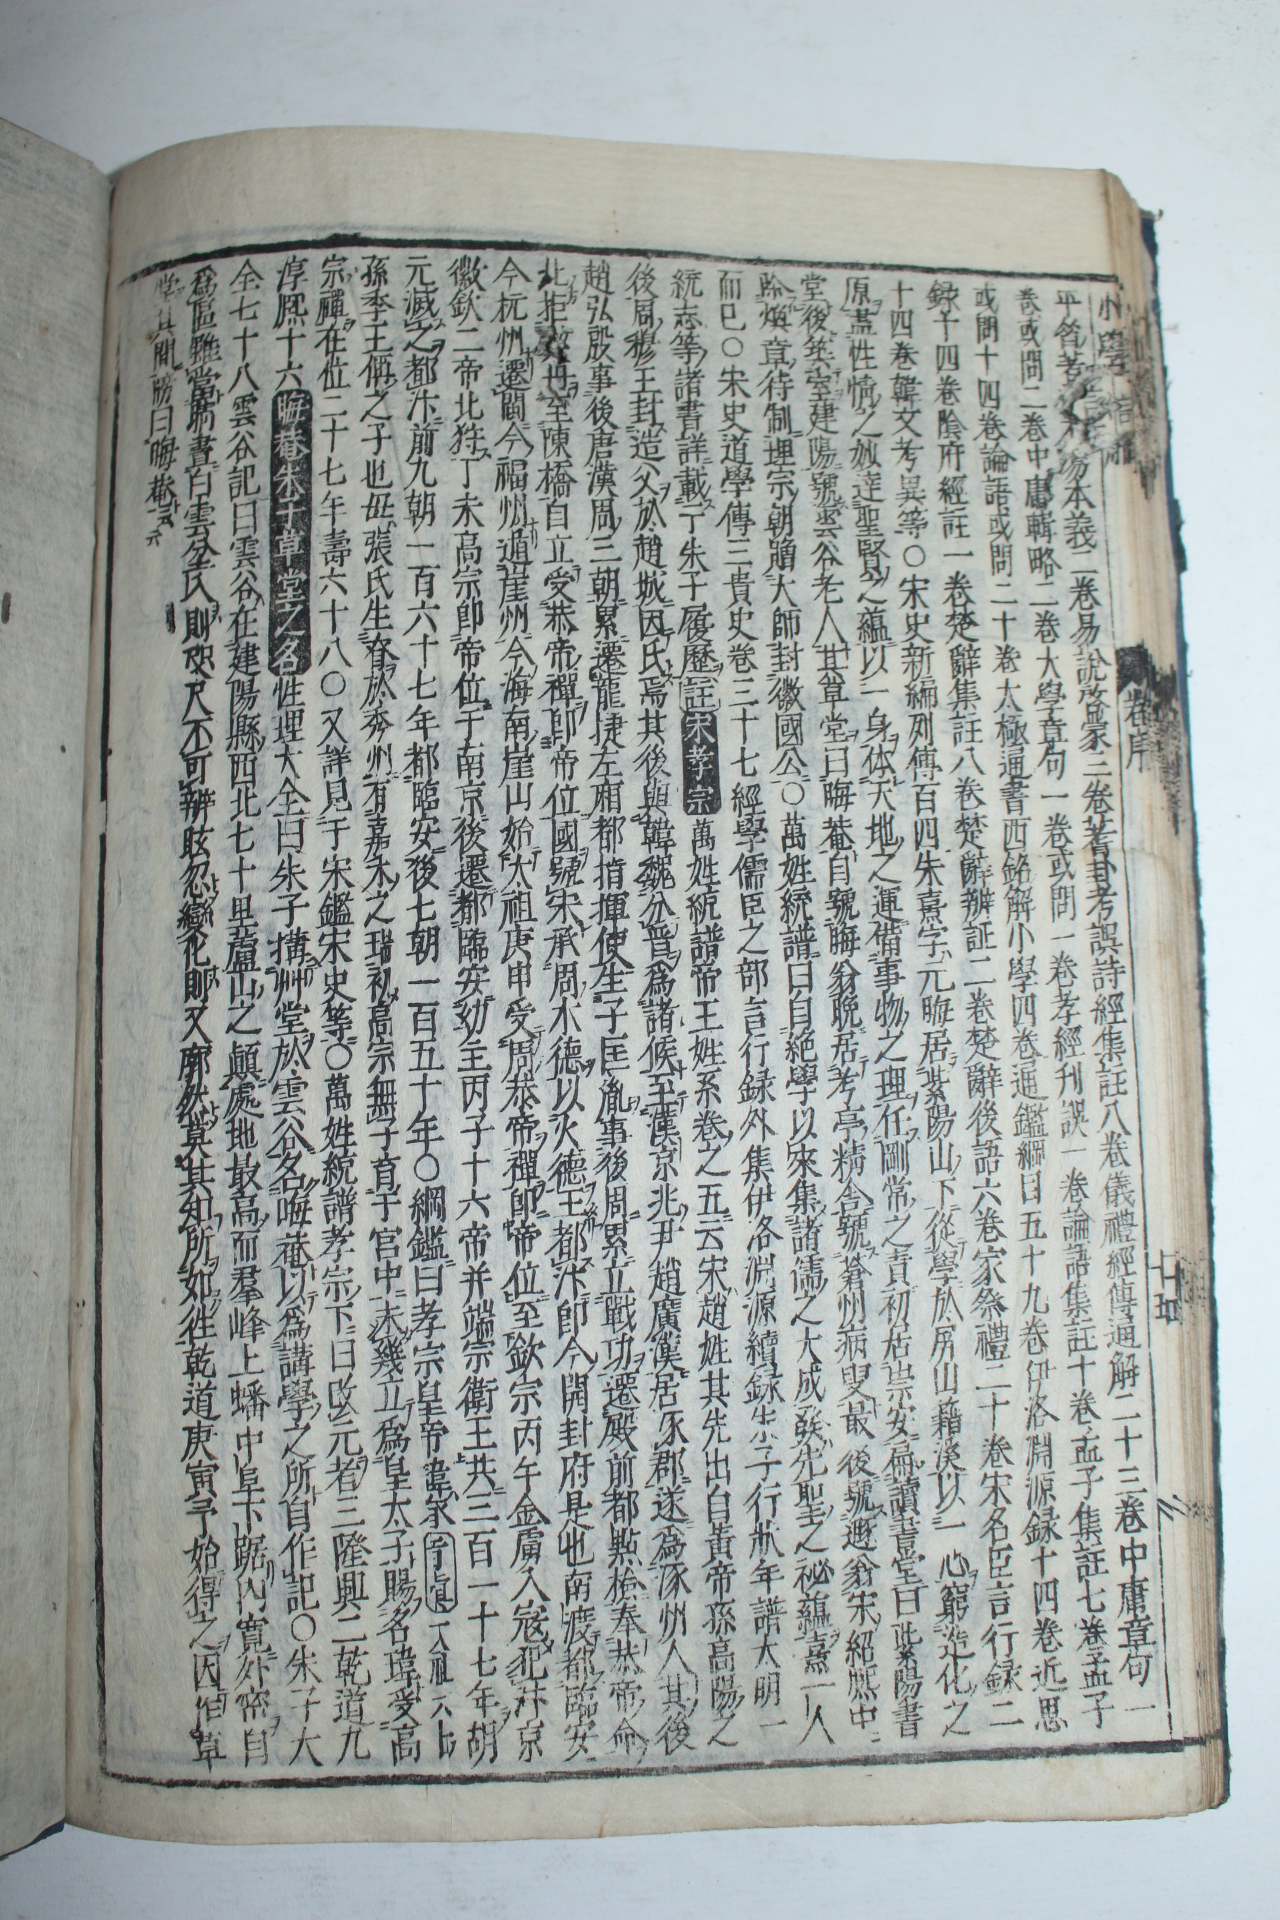 平答著 易本義二卷易說啓蒙三卷蓍卦考誤詩經集註八卷儀禮經傳通解二十三卷中庸章句一
卷或問二卷中庸輯略二卷大學章句一卷或問一卷孝經刊誤一卷論語集註十卷孟子集註七卷孟子
或問十四卷論語或問二十卷太極通書西銘解小學四卷通鑑綱目五十九卷伊洛淵源録十四卷近思
録十四卷陰府經註一卷楚辭集註八卷楚辭辨証二卷楚辭後語六卷家祭禮二十卷宋名臣言行録二
十四卷韓文考異等○宋史新編列傳百四朱熹字元晦居紫陽山下從學於屏山籍溪以一心窮造化之
原盖性情之妙達聖賢之蘊以一身体天地之運備事物之理任剛常之責初居崇安扁讀書堂曰紫陽書
堂後築室建陽號雲谷老人其草堂曰晦菴自號晦翁晚居考亭精舎號蒼州病叟最後號遯翁宋紹熈中
除煥章待制理宗朝贈大師封徽國公○萬姓統譜曰自絕學以來集諸儒之大成發先聖之祕蘊熹一人
而已○宋史道學傳三貴史卷三十七經學儒臣之部言行録外集伊洛淵源續録朱子行狀年譜大明一
統志等諸書詳載于朱子履歷註宋孝宗萬姓統譜帝王姓系卷之五云宋趙姓其先出自黃帝孫高陽之
後周穆王封造父於趙城因氏焉其後與韓魏分晋爲諸候至漢京兆尹趙廣漢居涿郡遂爲涿州人其後
趙弘殷事後唐漢周三朝累遷龍捷左廂都指揮使生子匡胤事後周累立戰功遷殿前都點檢奉恭帝命
北拒 丹至陳橋自立受恭帝禪卽帝位國號宋承周木德以火德王都汴卽今開封府是也南渡都臨安
今杭州遷閩今福州遁崖州今海南崖山始太祖庚申受周恭帝禪卽帝位至欽宗丙午金虜入寇犯汴京
徽欽二帝北狩丁未高宗卽帝位于南京後遷都臨安幼主丙子十六帝并端宗衛王共三百一十七年胡
元滅之都汴前九朝一百六十七年都臨安後七朝一百五十年○綱鑑曰孝宗皇帝諱眘字 太祖六世
孫季王偁之子也毋張氏生眘於秀州有嘉禾之瑞初高宗無子育于宮中未幾立爲皇太子賜名瑋受高
宗禪在位二十七年壽六十八○又詳見于宋鑑宋史等○萬姓統譜孝宗下曰改元者三隆興二乾道九
淳熈十六晦菴朱 草堂之名性理大全曰朱子搆艸堂於雲谷名晦菴以爲講學之所自作記○朱子大
全七十八雲谷記曰雲谷在建陽縣西北七十里蘆山之顚處地最高而羣峰上蟠中阜下踞內寛外密自
爲區雖當晴晝白雲坌入則咫尺不可辨眩忽變化則又廓然莫其知所如徃乾道庚寅予始得之因作草
堂其間牓曰晦菴云云
卷序